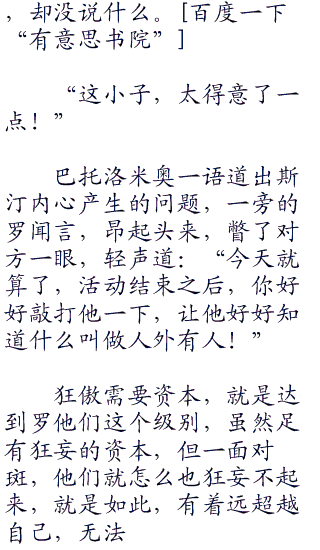 ，却没说什么。[百度一下
“有意思书院”]
“这小子，太得意了一
点！”
巴托洛米奥一语道出斯
汀内心产生的问题，一旁的
罗闻言，昂起头来，瞥了对
方一眼，轻声道：“今天就
算了，活动结束之后，你好
好敲打他一下，让他好好知
道什么叫做人外有人！”
狂傲需要资本，就是达
到罗他们这个级别，虽然足
有狂妄的资本，但一面对
斑，他们就怎么也狂妄不起
来，就是如此，有着远超越
自己，无法